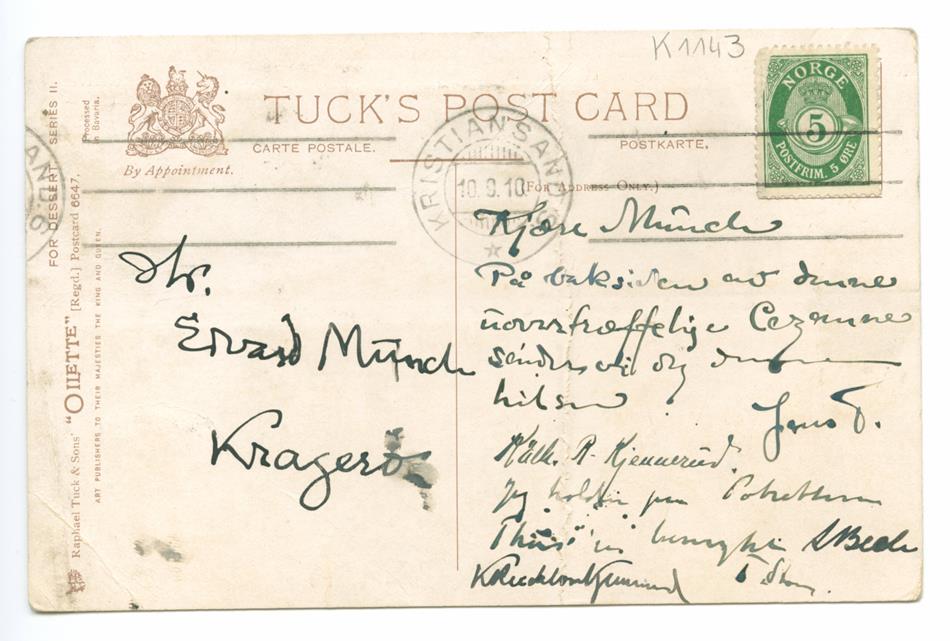 K1143
TUCK'S POST CARD
CARTE POSTALE.
POSTKARTE.
By Appointment.
(FOR ADDRESS ONLY.)
Processed
in Bavaria.
FOR DESSERT SERIES II.
Raphael Tuck & Sons' "OILETTE" [Regd.] Postcard 6647.
ART PUBLISHERS TO THEIR MAJESTIES THE KING AND QUEEN.
NORGE
5
POSTFRIM. 5 ØRE
KRISTIANSAND.S
10.9.10
AND.S
Hr.
Edvard Münch
Kragerø
Kjære Münch
På baksiden av denne
uovertræffelige Cezanne
sender vi dig denne
hilsen
Jens T.
Käth. R. Kjennerud.
Jeg holder paa
"Thiis"